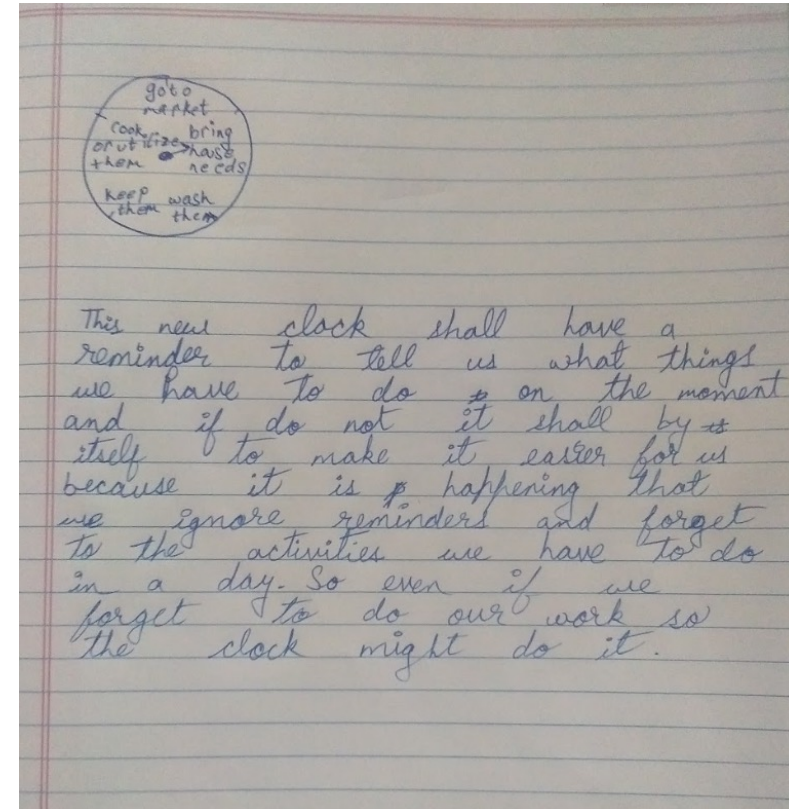 go to
market
cook
or utilize
them
bring
house
needs
keep
them
wash
them
This new clock shall have a
reminder to tell us what things
we have to do on the moment
and if do not it shall by
itself to make it easier for us
because it is happening that
we ignore reminders and forget
to the activities we have to do
in a day. So even if we
forget to do our work so
the clock might do it.